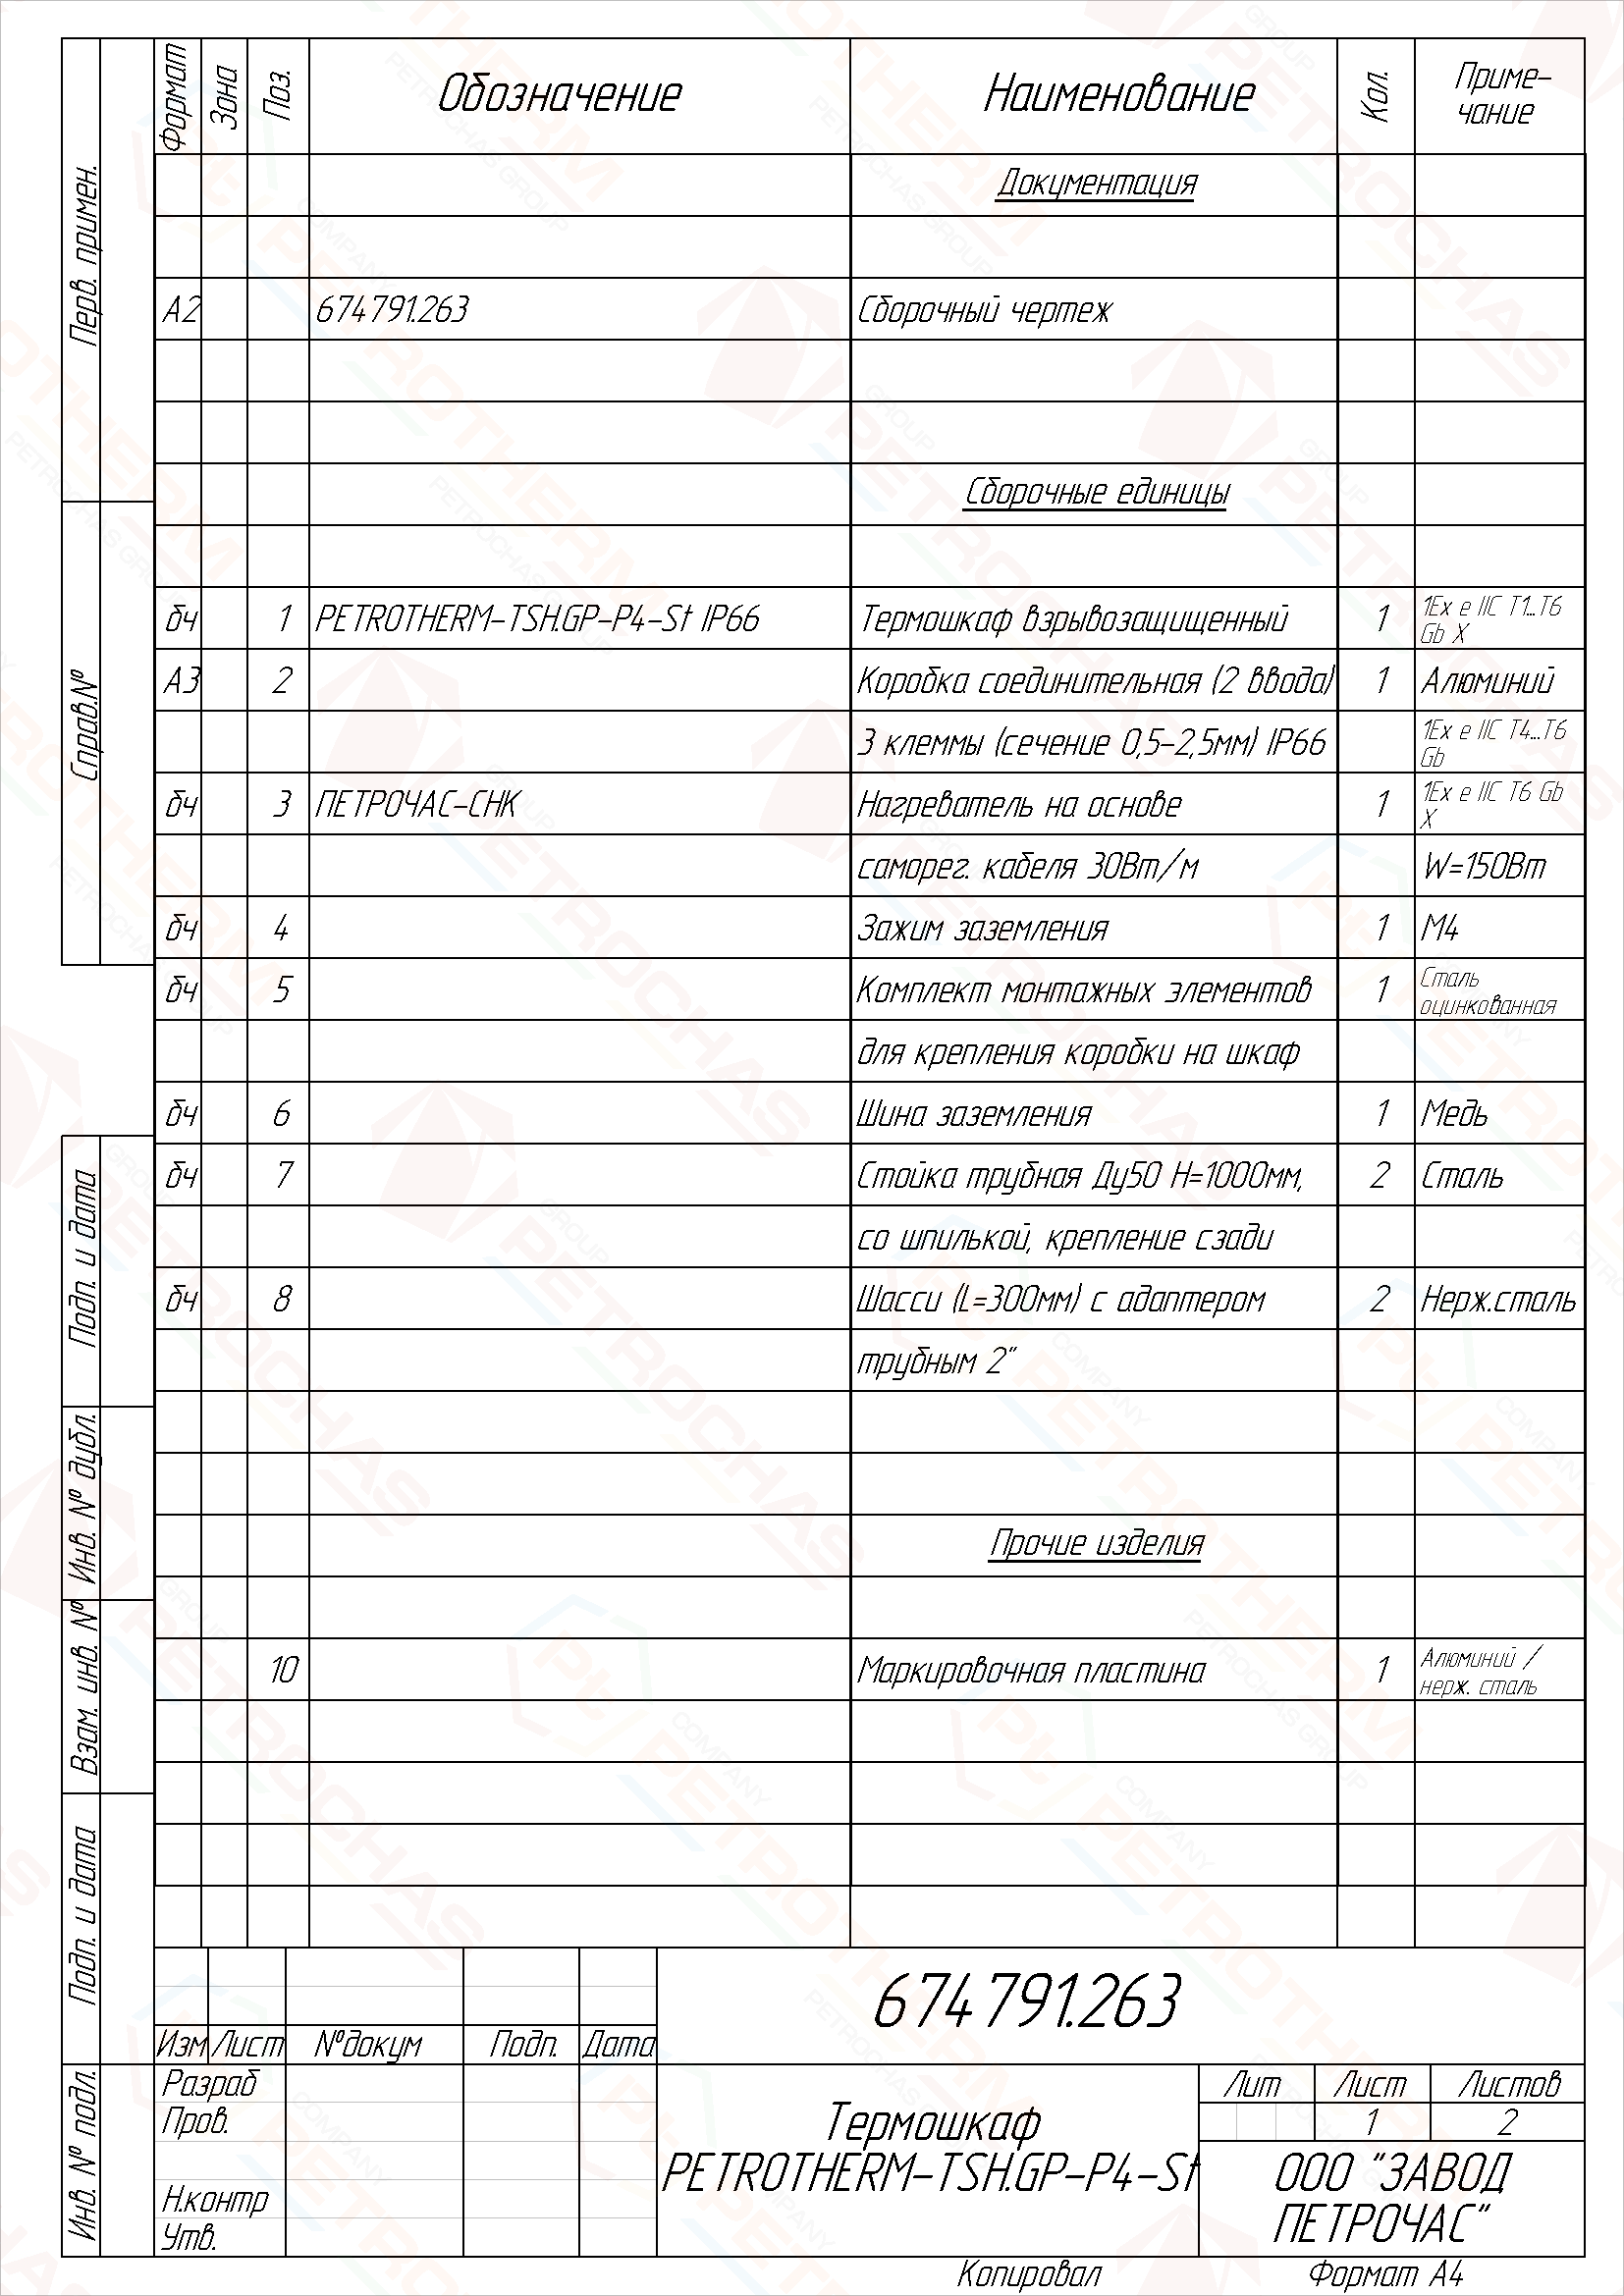 Формат Зона Поз. Обозначение Наименование Кол. Приме-
чание
Документация
А2 674791.263 Сборочный чертеж
Сборочные единицы
бч 1 PETROTHERM-TSH.GP-P4-St IP66 Термошкаф взрывозащищенный 1 1Ex e IIC T1...T6
Gb X
А3 2 Коробка соединительная (2 ввода) 1 Алюминий
3 клеммы (сечение 0,5-2,5мм) IP66 1Ex e IIC T4...T6
Gb
бч 3 ПЕТРОЧАС-СНК Нагреватель на основе 1 1Ex e IIC T6 Gb
X
саморег. кабеля 30Вт/м W=150Вт
бч 4 Зажим заземления 1 М4
бч 5 Комплект монтажных элементов 1 Сталь
оцинкованная
для крепления коробки на шкаф
бч 6 Шина заземления 1 Медь
бч 7 Стойка трубная Ду50 H=1000мм, 2 Сталь
со шпилькой, крепление сзади
бч 8 Шасси (L=300мм) с адаптером 2 Нерж.сталь
трубным 2"
Прочие изделия
10 Маркировочная пластина 1 Алюминий /
нерж. сталь
Перв. примен.
Справ.№
Подп. и дата
Инв. № дубл.
Взам. инв. №
Подп. и дата
Инв. № подл.
674791.263
Изм Лист №докум Подп. Дата
Разраб
Пров.
Н.контр
Утв.
Термошкаф
PETROTHERM-TSH.GP-P4-St
Лит Лист Листов
1 2
ООО "ЗАВОД
ПЕТРОЧАС"
Копировал Формат А4